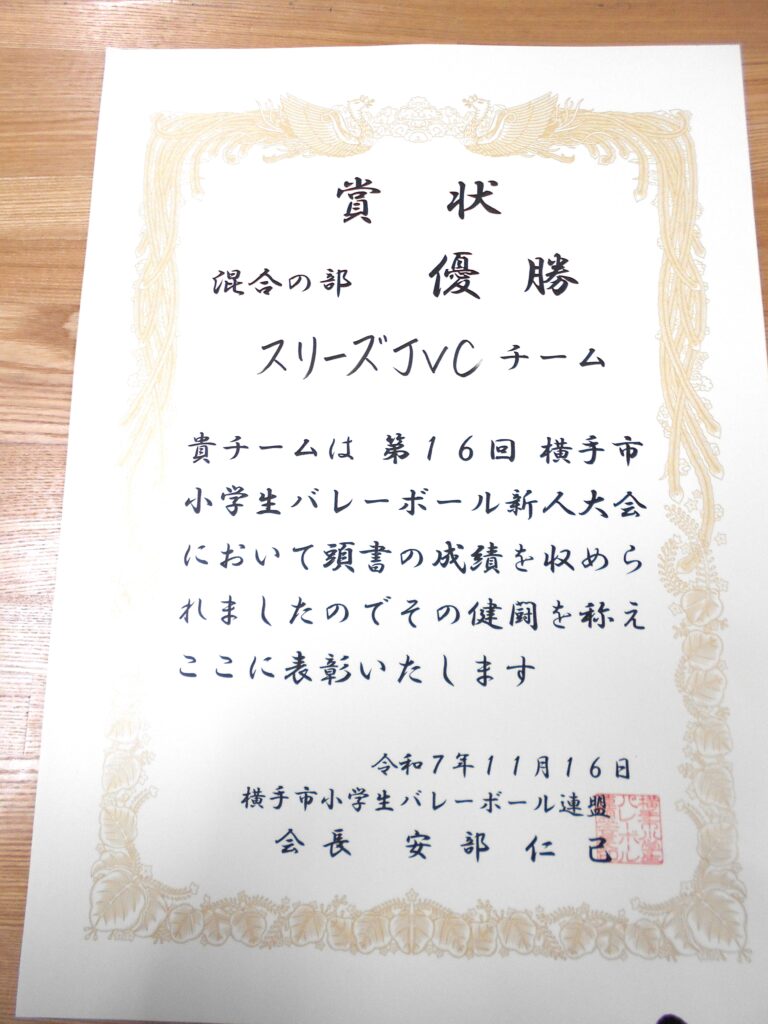 賞状
混合の部 優勝
スリーズJVCチーム
貴チームは 第16回 横手市
小学生バレーボール新人大会
において頭書の成績を収めら
れましたのでその健闘を称え
ここに表彰いたします
令和7年11月16日
横手市小学生バレーボール連盟
会長 安部仁己